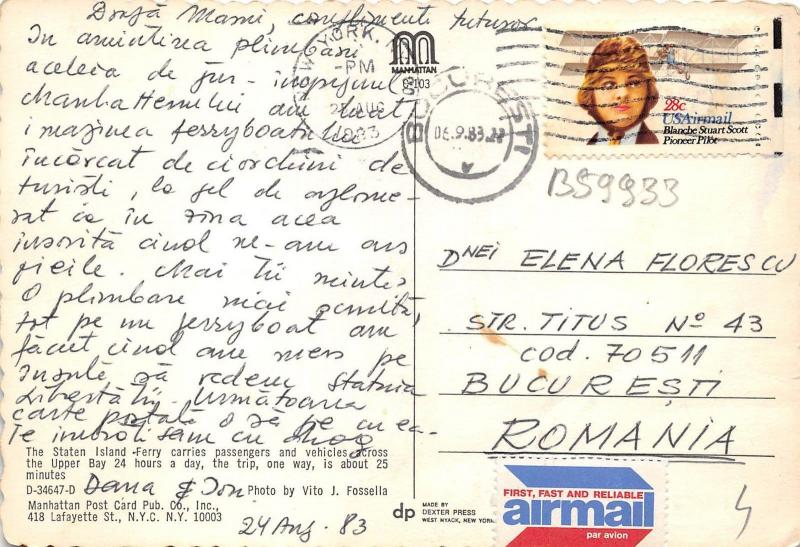 Dragă Mami, complimente tuturor
In amintirea plimbării
aceleia de jur-împrejurul
Manhattenului am luat
imaginea ferryboatului
încărcat de ciorchini de
turiști, la fel de aglome-
rat ca în ziua aceea
însorită cînd ne-am ars
picile. Mai ții minte?
O plimbare mică, scurtă,
tot pe un ferryboat am
făcut cînd am mers pe
Insulă să vedem Statuia
Libertății. Următoarea
carte poștală o să fie cu ea.
Te îmbrățișăm cu drag
Dana & Ion
24 Aug. 83
The Staten Island Ferry carries passengers and vehicles across
the Upper Bay 24 hours a day, the trip, one way, is about 25
minutes
D-34647-D
Photo by Vito J. Fossella
Manhattan Post Card Pub. Co., Inc.,
418 Lafayette St., N.Y.C. N.Y. 10003
MANHATTAN
8-103
YORK, N
PM
AUG
1983
BUCUREȘTI
06.9.83.22
28c
USAirmail
Blanche Stuart Scott
Pioneer Pilot
B59933
DNEI ELENA FLORESCU
STR. TITUS Nº 43
COD. 70511
BUCUREȘTI
ROMANIA
dp
MADE BY
DEXTER PRESS
WEST NYACK, NEW YORK
FIRST, FAST AND RELIABLE
airmail
par avion
4